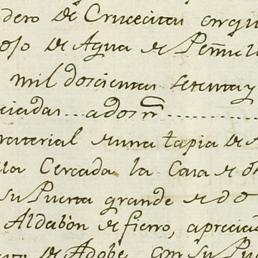 dero de Cruecitas en
oso de Agua de Peñuela
mil doscientas setenta y
ciadas ados rr.
material una tapia de
lla Cercada la Casa de
su Puerta grande de dos
Aldabòn de fierro, aprecia
de Adobe, con su Pu